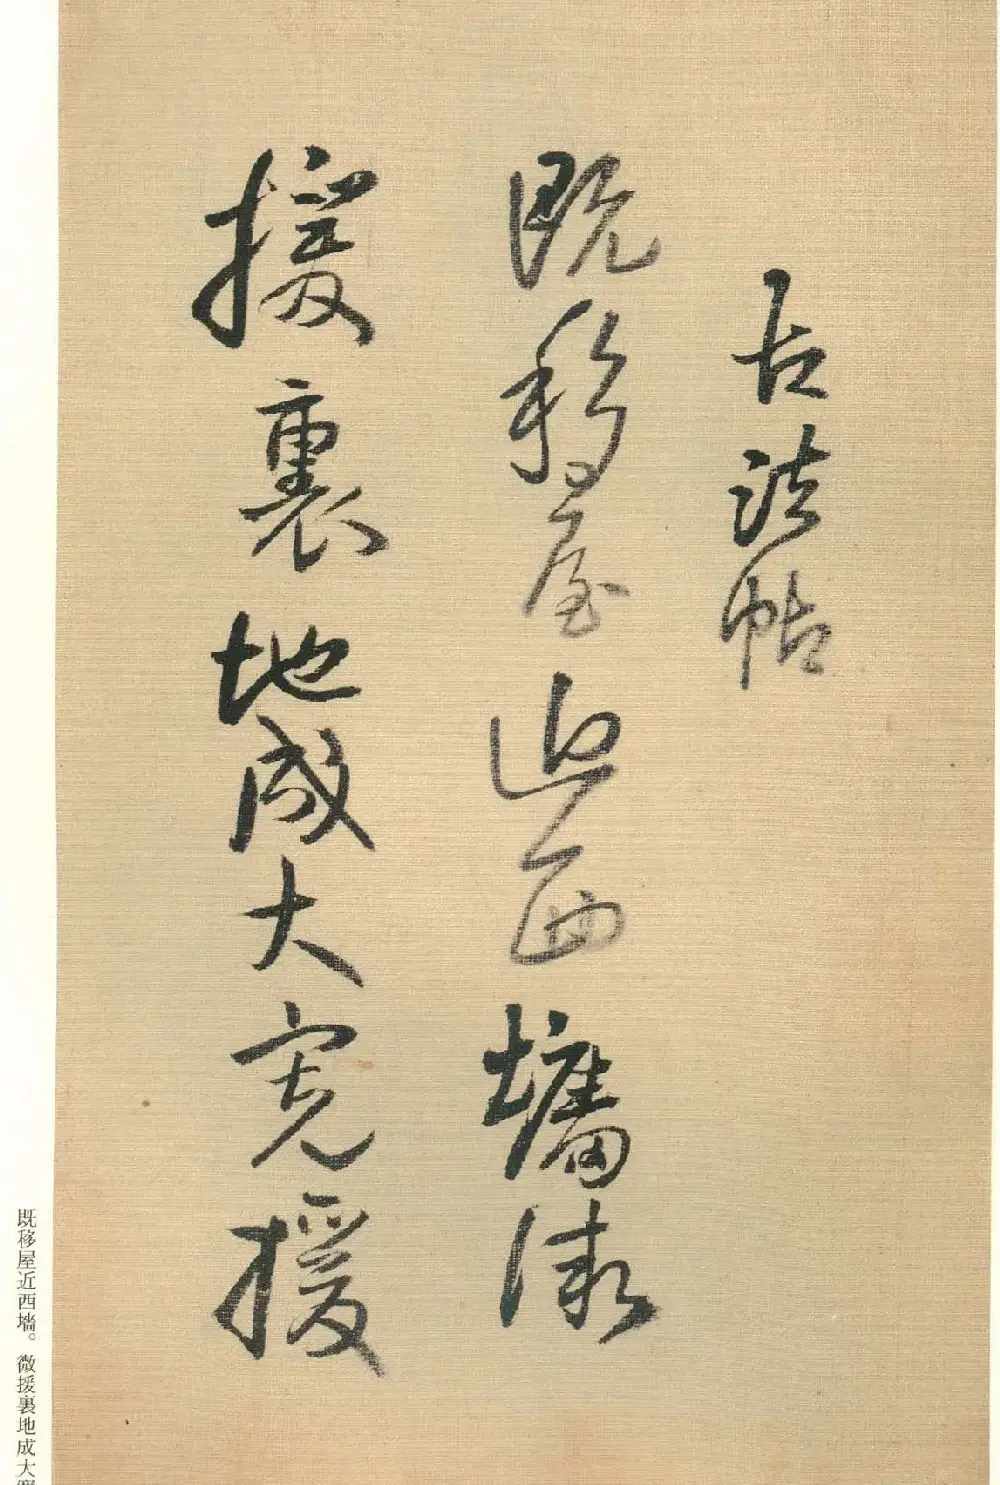 古法帖
既移屋近西墙微
援裏地成大宽援
既移屋近西墙。微援裏地成大